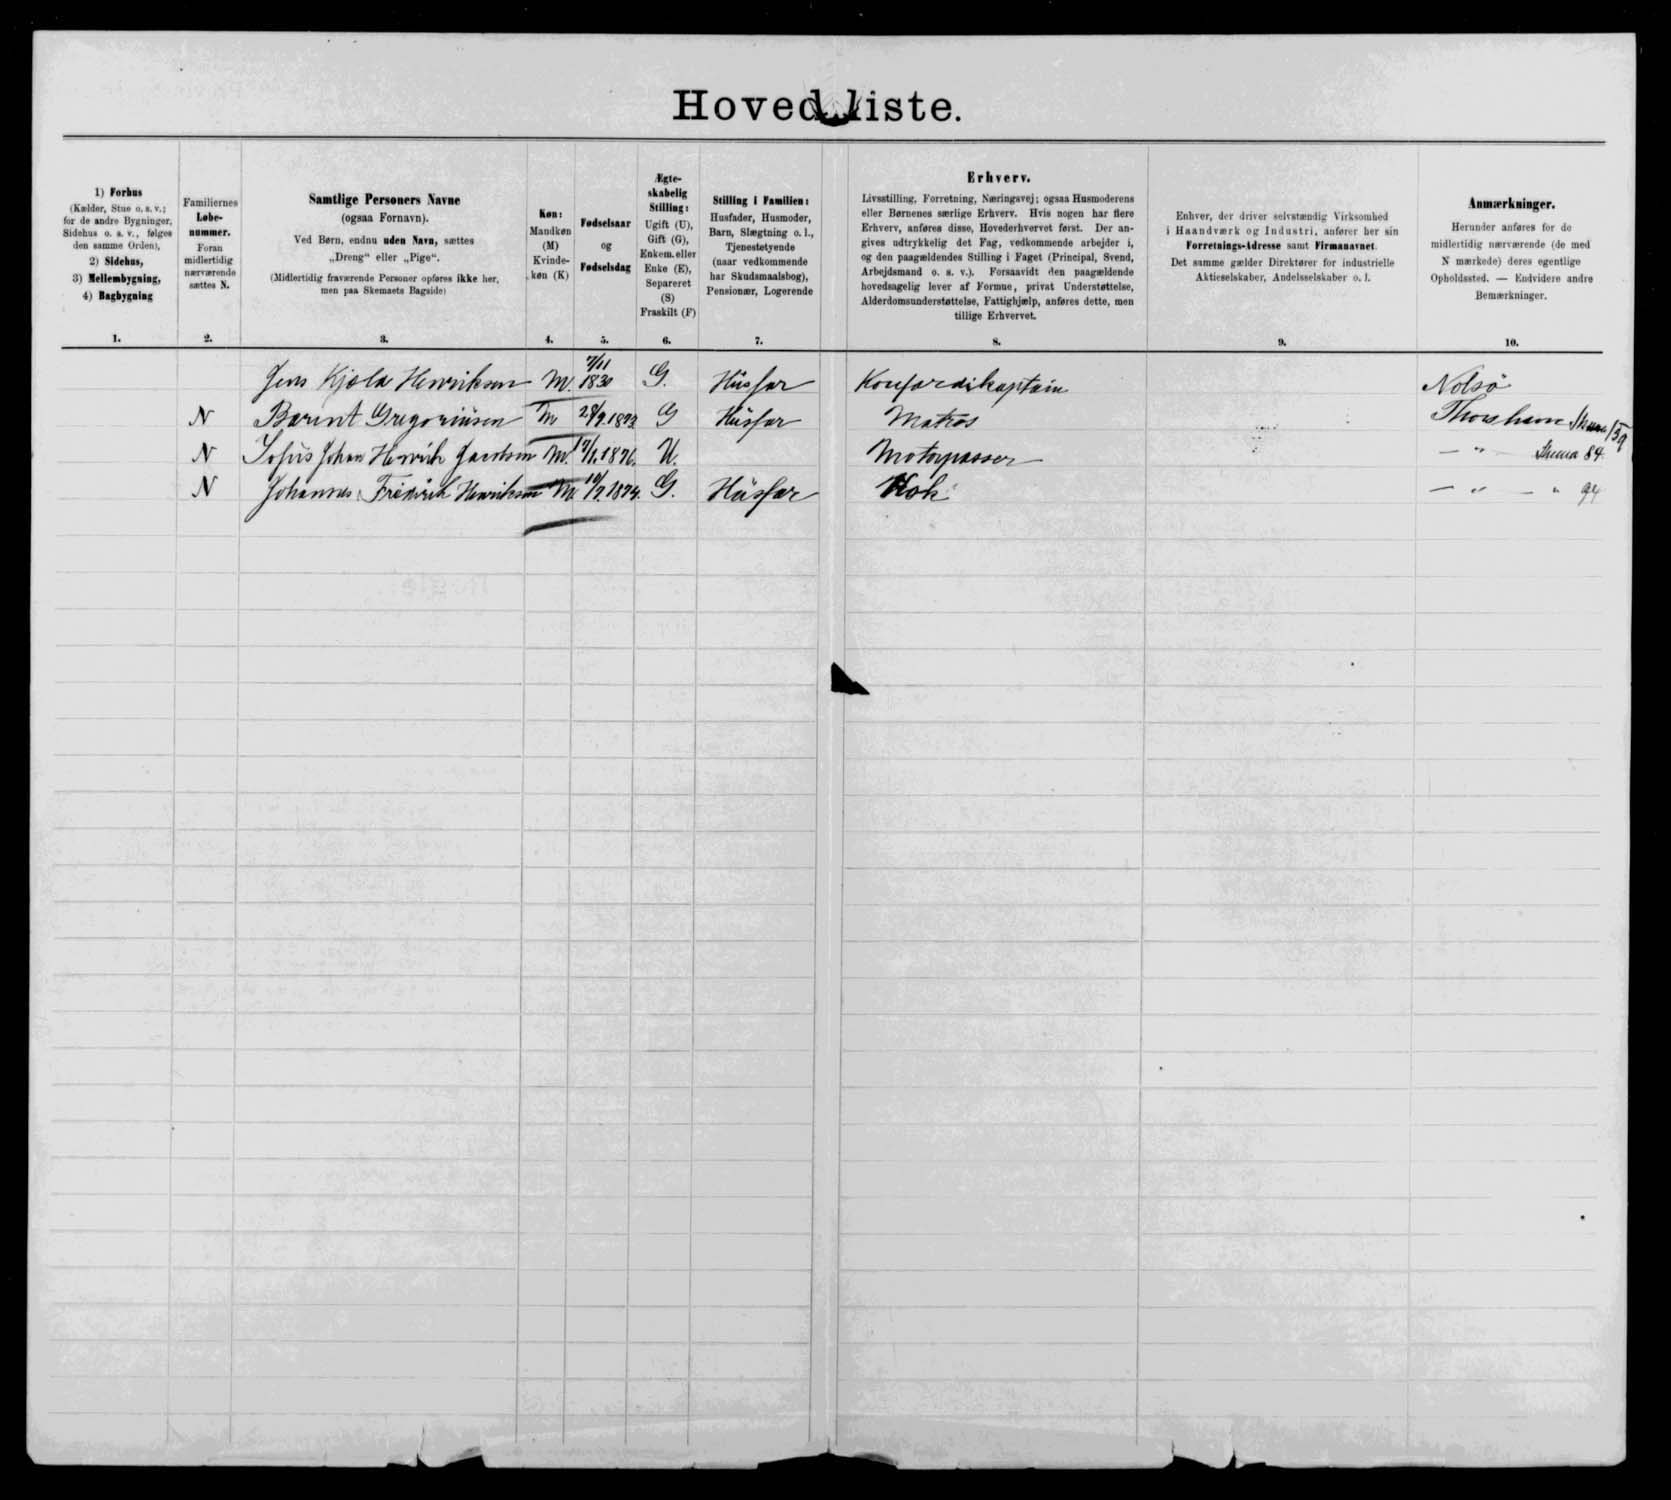 Hovedliste.
1) Forhus
(Kælder, Stue o. s. v.;
for de andre Bygninger,
Sidehus o. s. v., følges
den samme Orden),
2) Sidehus,
3) Mellembygning,
4) Bagbygning
Familiernes
Løbe-
nummer.
Foran
midlertidig
nærværende
sættes N.
Samtlige Personers Navne
(ogsaa Fornavn).
Ved Børn, endnu uden Navn, sættes
„Dreng“ eller „Pige“.
(Midlertidig fraværende Personer opføres ikke her,
men paa Skemaets Bagside)
Køn:
Mandkøn
(M)
Kvinde-
køn (K)
Fødselsaar
og
Fødselsdag
Ægte-
skabelig
Stilling:
Ugift (U),
Gift (G),
Enkem. eller
Enke (E),
Separeret
(S)
Fraskilt (F)
Stilling i Familien:
Husfader, Husmoder,
Barn, Slægtning o. l.,
Tjenestetyende
(naar vedkommende
har Skudsmaalsbog),
Pensionær, Logerende
Erhverv.
Livsstilling, Forretning, Næringsvej; ogsaa Husmoderens
eller Børnenes særlige Erhverv. Hvis nogen har flere
Erhverv, anføres disse, Hovederhvervet først. Der an-
gives udtrykkelig det Fag, vedkommende arbejder i,
og den paagældendes Stilling i Faget (Principal, Svend,
Arbejdsmand o. s. v.). Forsaavidt den paagældende
hovedsagelig lever af Formue, privat Understøttelse,
Alderdomsunderstøttelse, Fattighjælp, anføres dette, men
tillige Erhvervet.
Enhver, der driver selvstændig Virksomhed
i Haandværk og Industri, anfører her sin
Forretnings-Adresse samt Firmanavnet.
Det samme gælder Direktører for industrielle
Aktieselskaber, Andelsselskaber o. l.
Anmærkninger.
Herunder anføres for de
midlertidig nærværende (de med
N mærkede) deres egentlige
Opholdssted. — Endvidere andre
Bemærkninger.
1. 2. 3. 4. 5. 6. 7. 8. 9. 10.
Jens Kjeld Henriksen M. 7/11 1830 G. Husfar Konfardikaptain Nolsö
N Barint Gregoriusen M G Husfar Matros Thorshavn
N Sofus Johan Henrik Jacobsen M. U. Motorpasser — " — Skema 84.
N Johannes Fredrik Henriksen M G. Husfar Kok — " — " 94